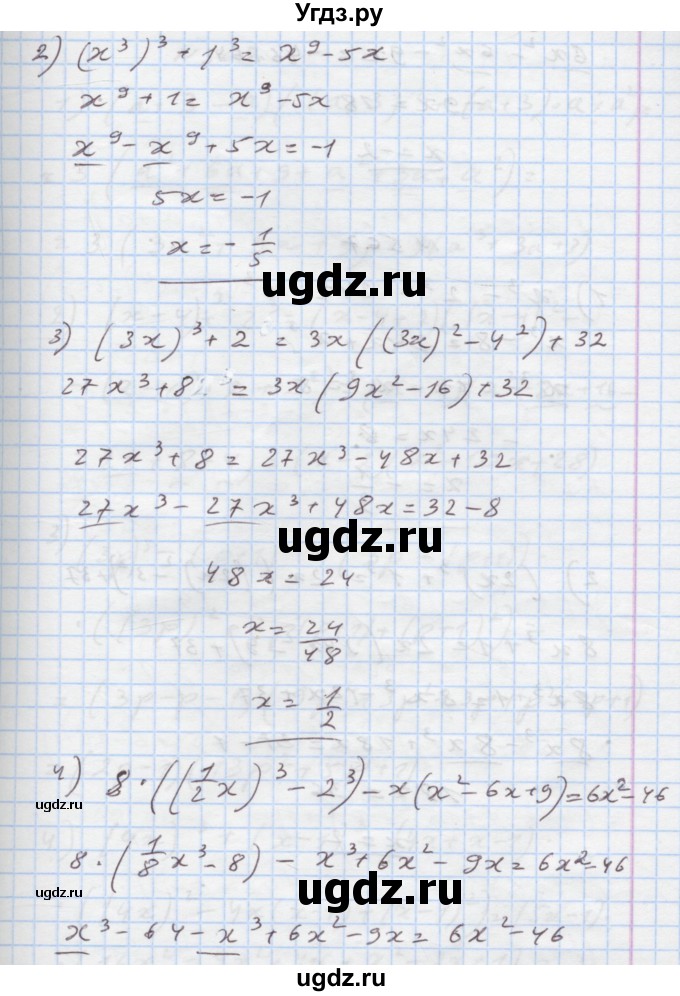 Угдз.ру
2) (x³)³ + 1³ = x⁹ - 5x
x⁹ + 1 = x⁹ - 5x
x⁹ - x⁹ + 5x = -1
5x = -1
x = - 1/5
ugdz.ru
3) (3x)³ + 2 = 3x((3x)² - 4²) + 32
27x³ + 8 = 3x(9x² - 16) + 32
27x³ + 8 = 27x³ - 48x + 32
27x³ - 27x³ + 48x = 32 - 8
ugdz.ru
48x = 24
x = 24/48
x = 1/2
4) 8 · ((1/2 x)³ - 2³) - x(x² - 6x + 9) = 6x² - 46
ugdz.ru
ugdz.ru
8 · (1/8 x³ - 8) - x³ + 6x² - 9x = 6x² - 46
ugdz.ru
ugdz.ru
x³ - 64 - x³ + 6x² - 9x = 6x² - 46
ugdz.ru